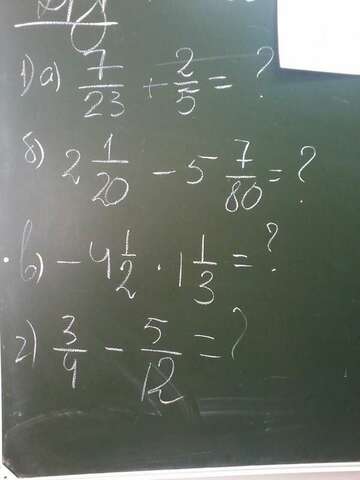 1) а) 7/23 + 2/5 = ?
б) 2 1/20 - 5 7/80 = ?
в) - 4 1/2 · 1 1/3 = ?
г) 3/4 - 5/12 = ?